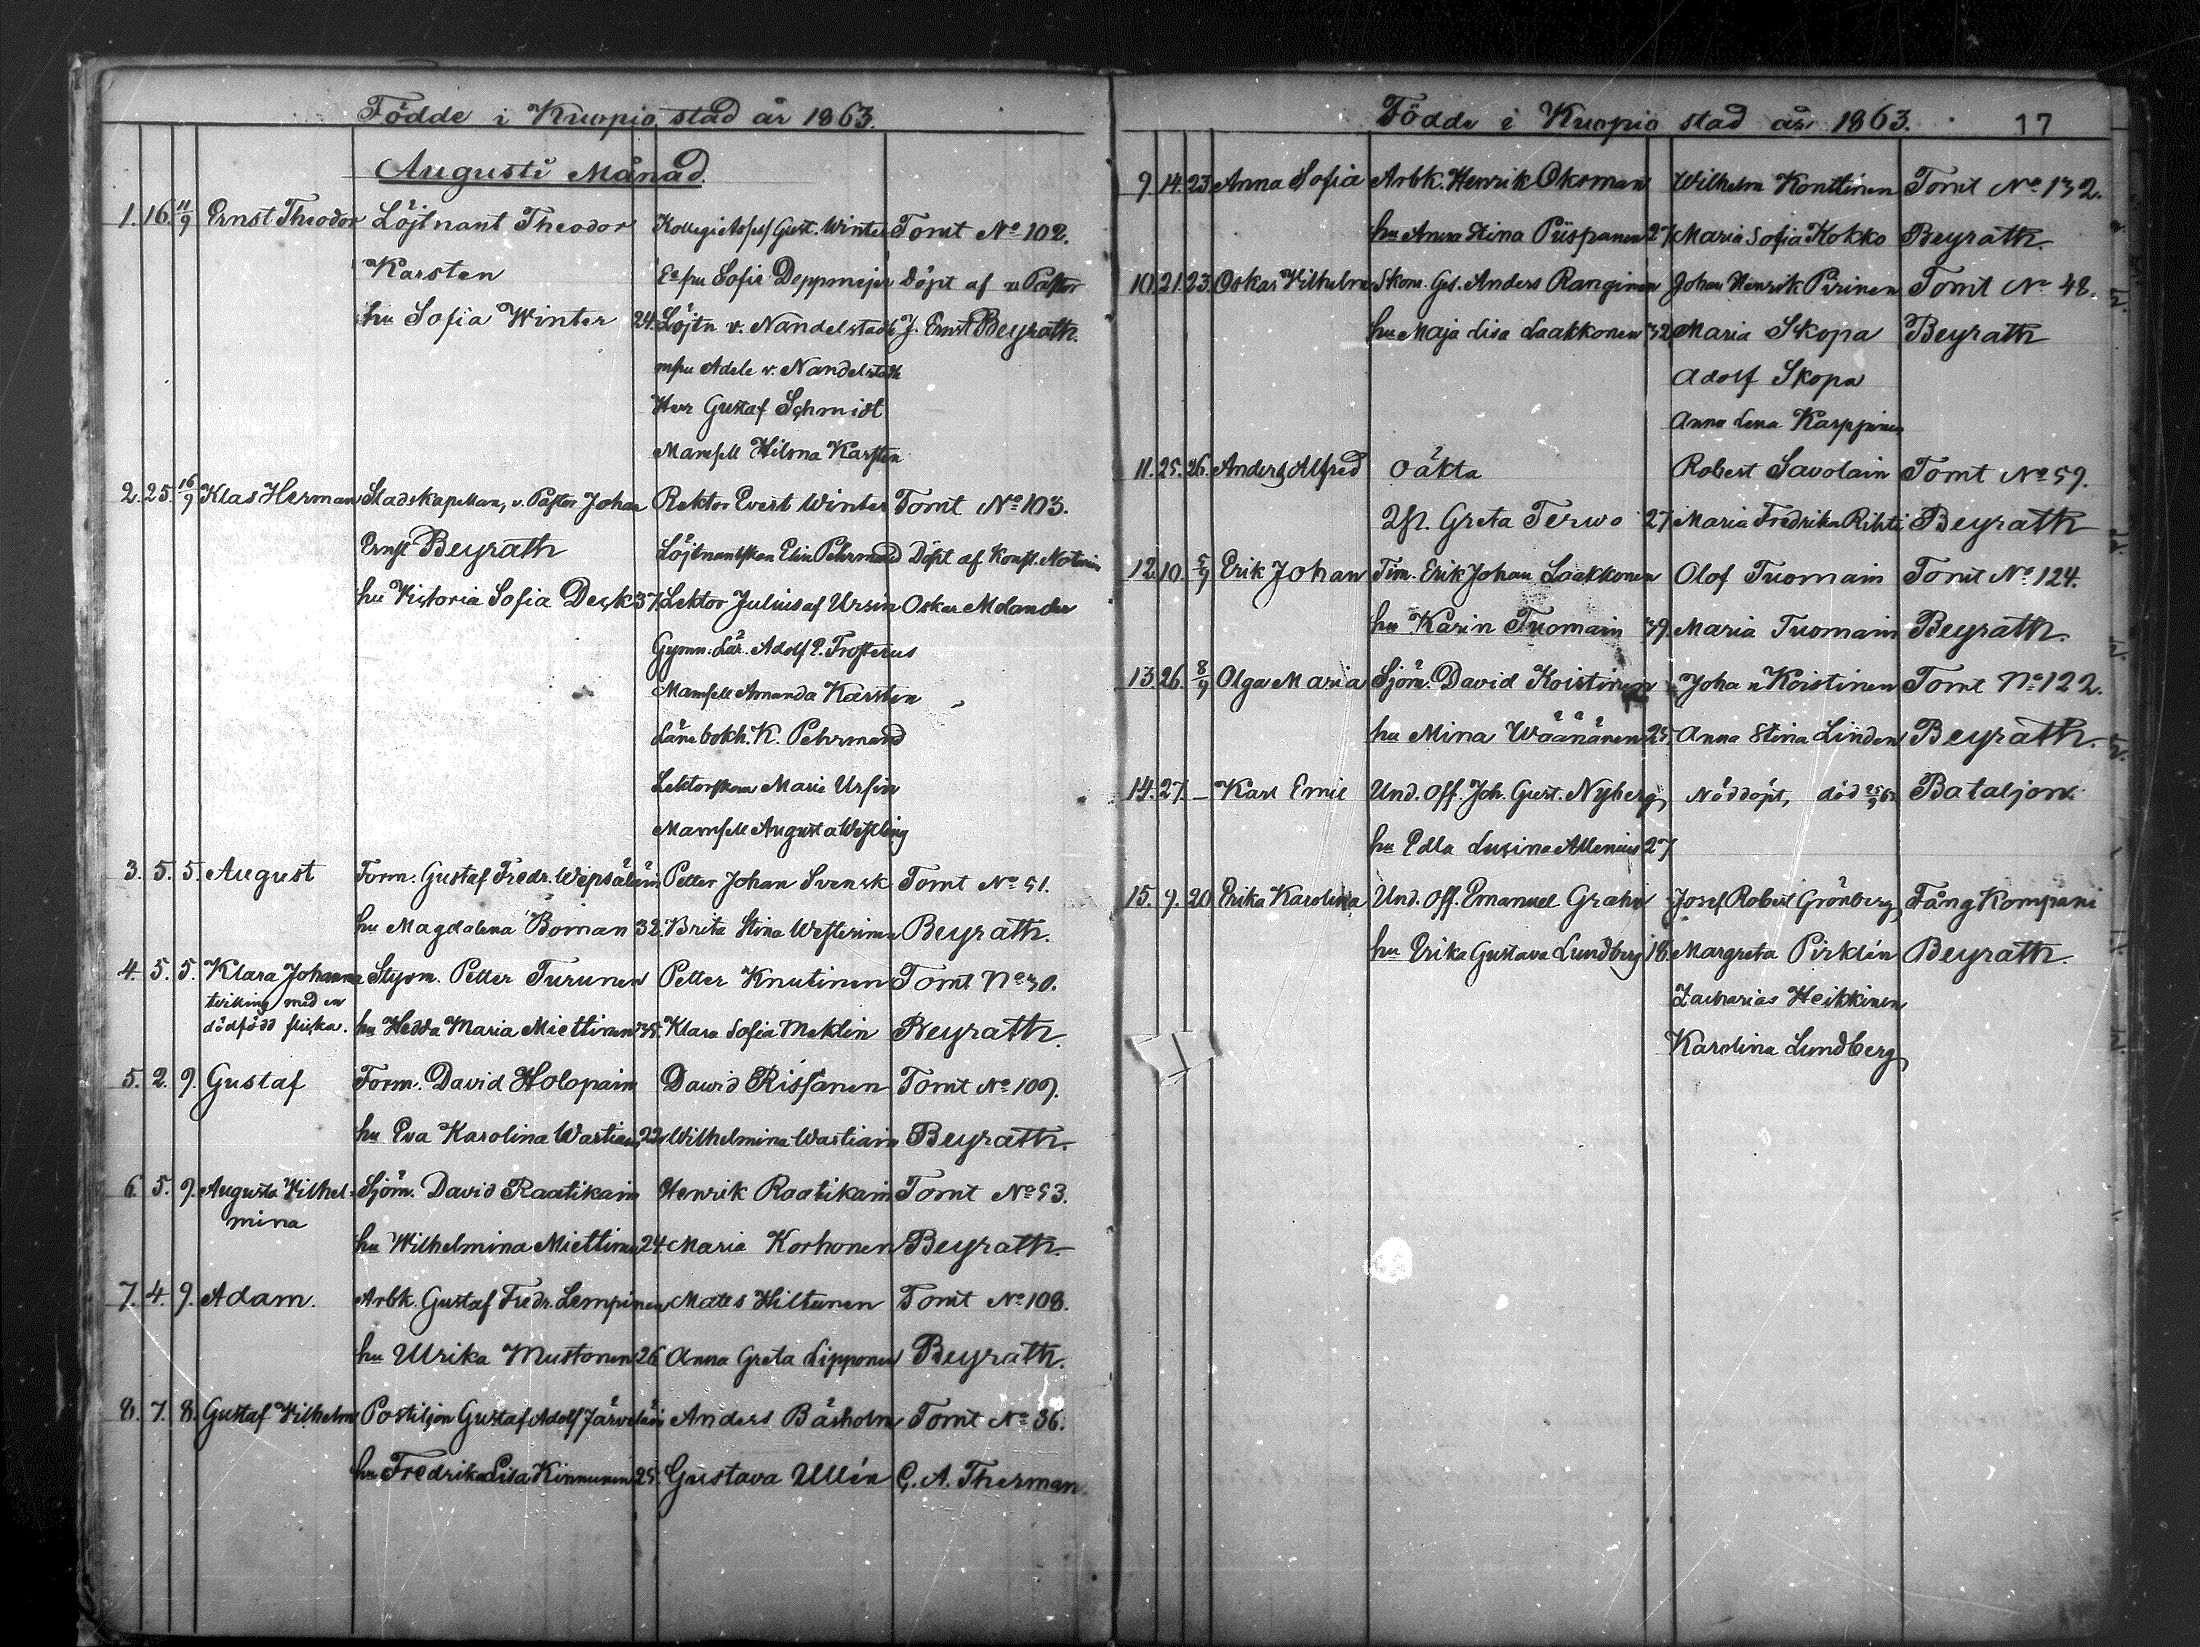 Födde i Kuopio stad år 1863.
Augusti Månad.
1. 16. 11/9 Ernst Theodor Löjtnant Theodor Kollegie Assess. Gust. Winter Tomt No 102.
Karsten fru Sofie Deppmejer Döpt af v. Pastor
hu Sofia Winter 24. Löjtn v. Nandelstadh J. Ernst Beyrath.
mfru Adele v. Nandelstadh
Herr Gustaf Schmidt
Mamsell Hilma Karsten
2. 25. 16/9 Klas Herman Stadskapellan, v. Pastor Johan Rektor Evert Winter Tomt No 103.
Ernst Beyrath Löjtnantskan Elin Pehrmand Döpt af Konst. Notarien
hu Victoria Sofia Deck 37 Lektor Julius af Ursin Oskar Molander
Gymn. Lär. Adolf E. Frosterus
Mamsell Amanda Karsten
Läns bokh. K. Pehrmand
Lektorskan Marie Ursin
Mamsell Augusta Westling
3. 5. 5. August Form. Gustaf Fredr. Wepsäläin Petter Johan Svensk Tomt No 51.
hu Magdalena Boman 32. Brita Stina Westerinen Beyrath.
4. 5. 5. Klara Johanna Styrm. Petter Turunen Petter Knutinen Tomt No 30.
tvilling med en
dödfödd flicka. hu Hedda Maria Miettinen 35. Klara Sofia Meklin Beyrath.
5. 2. 9. Gustaf Form. David Holopain Dawid Rissanen Tomt No 109.
hu Eva Karolina Wartiain 22 Wilhelmina Wartiain Beyrath.
6. 5. 9. Augusta Vilhel- Sjöm. David Raatikain Henrik Raatikain Tomt No 53.
mina
hu Wilhelmina Miettinen 24 Maria Korhonen Beyrath.
7. 4. 9. Adam. Arbk. Gustaf Fredr. Lempinen Mats Hiltunen Tomt No 108.
hu Ulrika Mustonen 26 Anna Greta Lipponen Beyrath.
8. 7. 8. Gustaf Vilhelm Postiljon Gustaf Adolf Järveläin Anders Båsholm Tomt No 36.
hu Fredrika Lisa Kinnunen 25. Gustava Ullén C. A. Therman.
Födde i Kuopio stad år 1863. 17
9. 14. 23 Anna Sofia Arbk. Henrik Oksman Wilhelm Konttinen Tomt No 132.
hu Anna Stina Piispanen 27 Maria Sofia Kokko Beyrath.
10. 21. 23. Oskar Vilhelm Skom. Ges. Anders Ranginen Johan Henrik Pirinen Tomt No 48.
hu Maja Lisa Laakkonen 32 Maria Skopa Beyrath
Adolf Skopa
Anna Lena Karppinen
11. 25. 26. Anders Alfred Oäkta Robert Savolain Tomt No 59.
Greta Terwo 27 Maria Fredrika Rihti Beyrath
12. 10. 5/9 Erik Johan Tim. Erik Johan Laakkonen Olof Tuomain Tomt No 124.
hu Karin Tuomain 39. Maria Tuomain Beyrath.
13. 26. 8/9 Olga Maria Sjöm. David Koistinen Johan Koistinen Tomt No 122.
hu Mina Wäänänen 25. Anna Stina Linden Beyrath.
14. 27. – Karl Emil Und. Off. Joh. Gust. Nyberg Nöddöpt, död Bataljon.
hu Edla Lusina Allenius 27
15. 9. 20 Erika Karolina Und. Off. Emanuel Grahn Josef Robert Grönberg Fång Kompani
hu Erika Gustava Lundberg 18. Margreta Pirklén Beyrath.
Zacharias Heikkinen
Karolina Lundberg